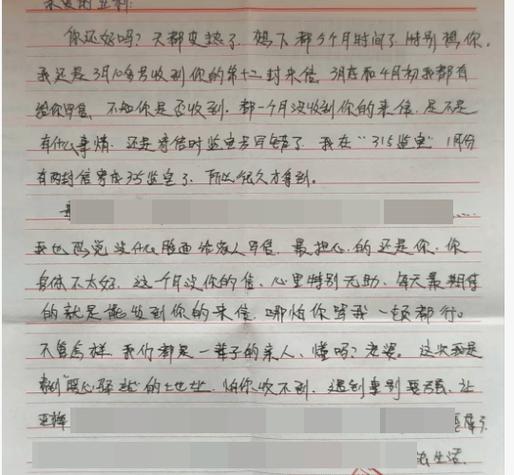 亲爱的
你还好吗?天都变热了,都5个月时间了,特别想你,
我还是3月10多号收到你的第十二封来信,3月底和4月初我都有
给你写信,不知你是否收到,都一个月没收到你的来信,是不是
有什么事情,还是寄信时监室号写错了,我在"315监室"1月份
有两封信寄成35监室了,所以很久才拿到。
我也感觉没什么脸面给家人写信,最担心的还是你,你
身体不太好,这一个月没你的信,心里特别无助,每天最期待
的就是能收到你的来信,哪怕你骂我一顿都行。
不管怎样,我们都是一辈子的亲人,懂吗?老婆。这次我是
"暖心驿站"的地址,怕你收不到,遇到事别要强,让
生活